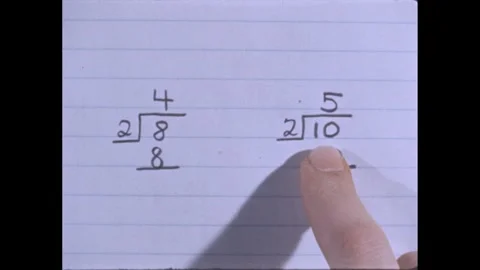 4 5
2 8 2 10
8